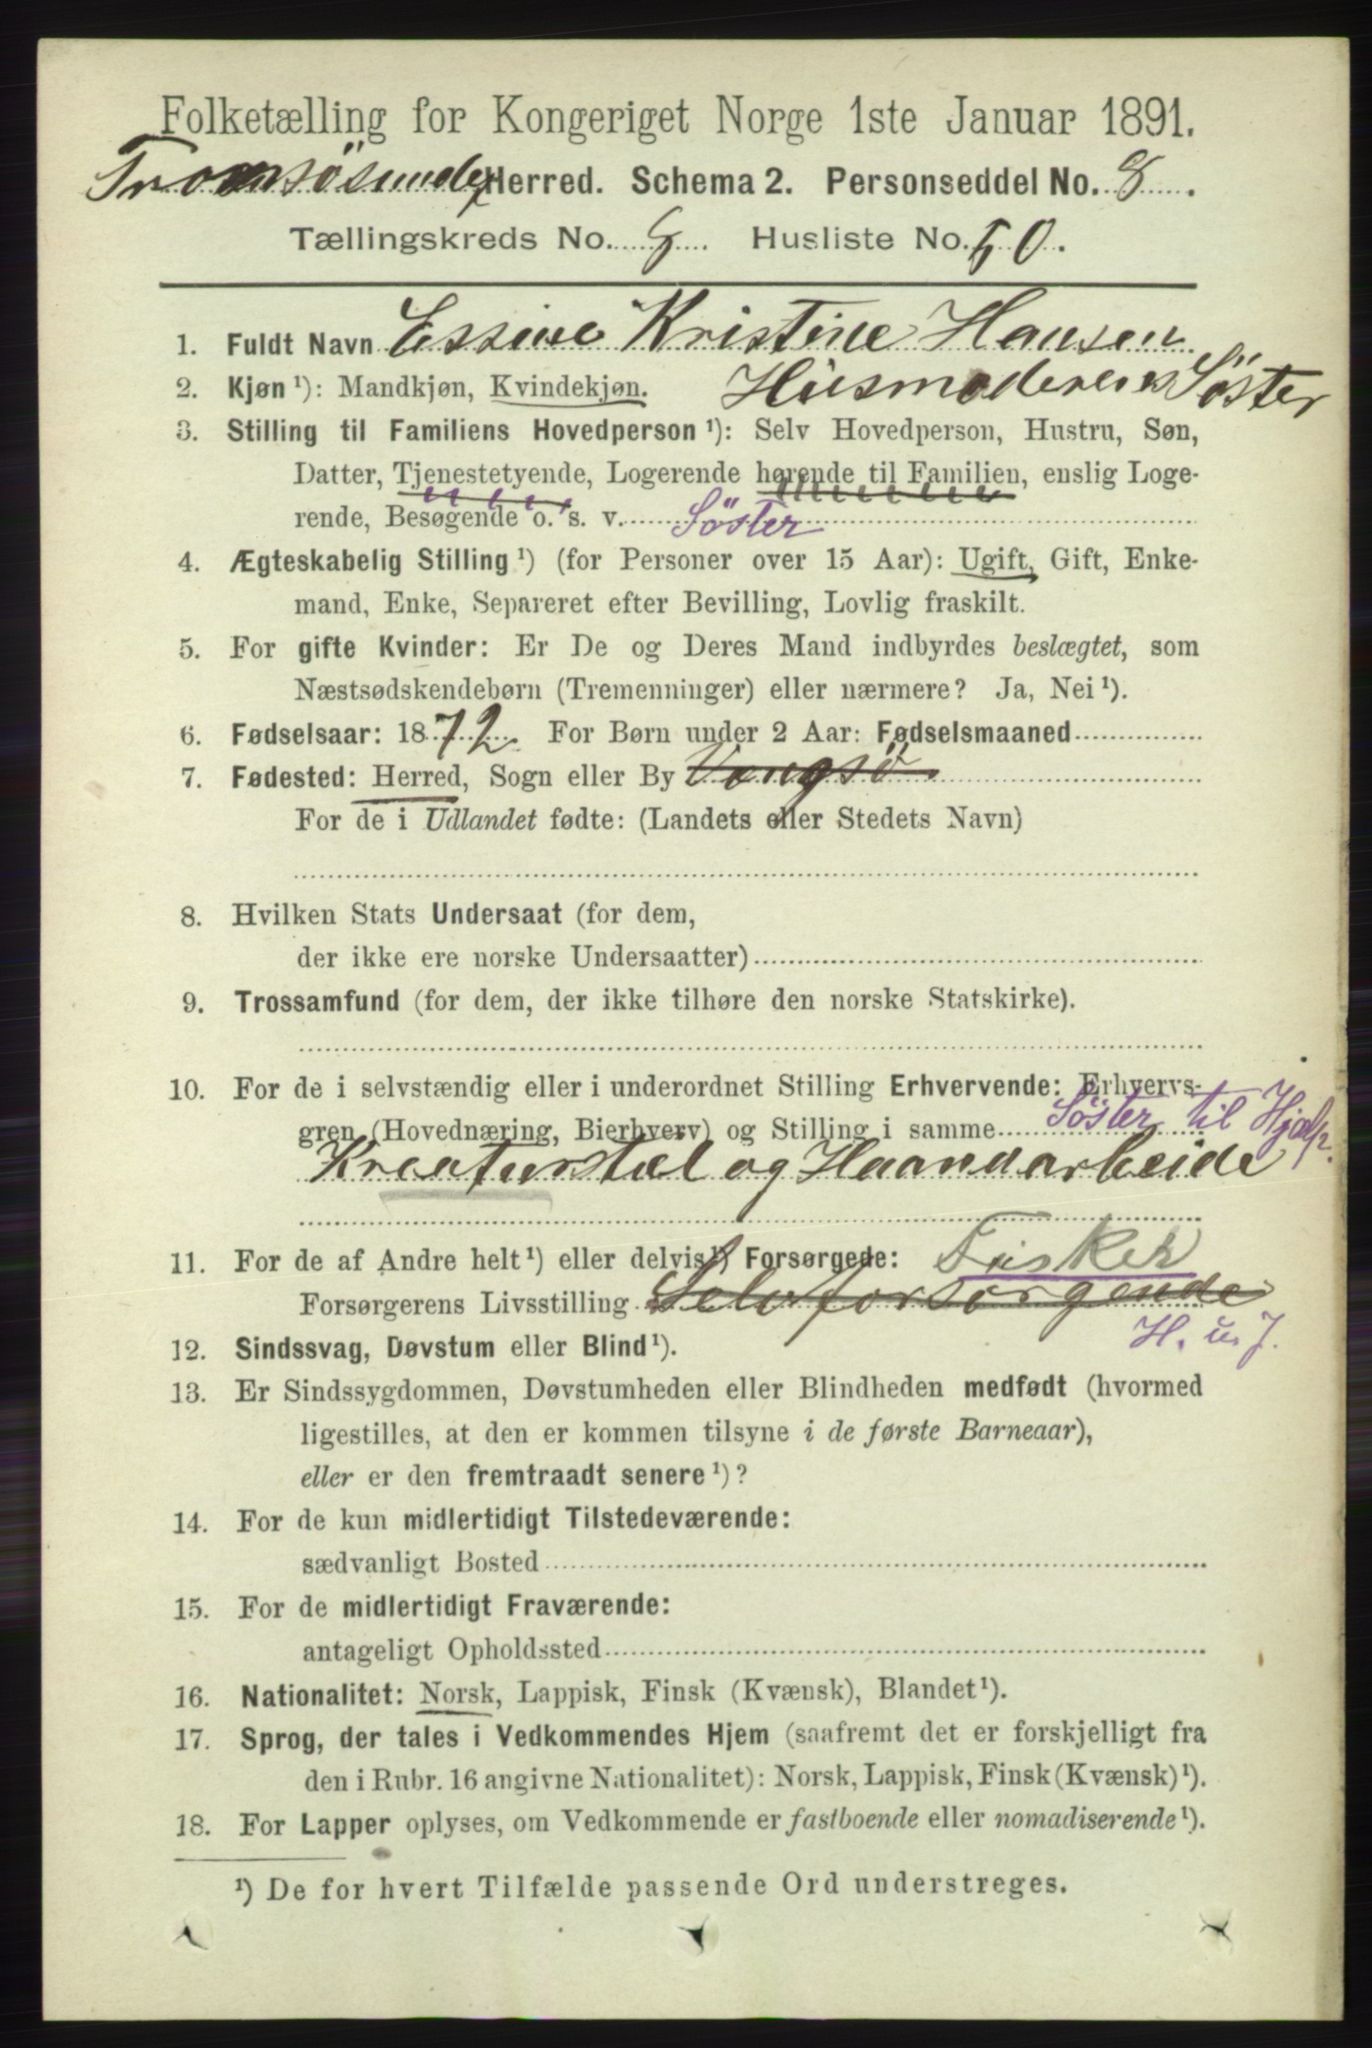 Folketælling for Kongeriget Norge 1ste Januar 1891.
Tromsøsundet Herred. Schema 2. Personseddel No. 8.
Tællingskreds No. 8. Husliste No. 50.
1. Fuldt Navn Essine Kristine Hansen
2. Kjøn ¹): Mandkjøn, Kvindekjøn. Husmoderens Söster
3. Stilling til Familiens Hovedperson ¹): Selv Hovedperson, Hustru, Søn,
Datter, Tjenestetyende, Logerende hørende til Familien, enslig Loge-
rende, Besøgende o. s. v. Söster
4. Ægteskabelig Stilling ¹) (for Personer over 15 Aar): Ugift, Gift, Enke-
mand, Enke, Separeret efter Bevilling, Lovlig fraskilt.
5. For gifte Kvinder: Er De og Deres Mand indbyrdes beslægtet, som
Næstsødskendebørn (Tremenninger) eller nærmere? Ja, Nei ¹).
6. Fødselsaar: 1872 For Børn under 2 Aar: Fødselsmaaned
7. Fødested: Herred, Sogn eller By Vengsö
For de i Udlandet fødte: (Landets eller Stedets Navn)
8. Hvilken Stats Undersaat (for dem,
der ikke ere norske Undersaatter)
9. Trossamfund (for dem, der ikke tilhøre den norske Statskirke).
10. For de i selvstændig eller i underordnet Stilling Erhvervende: Erhvervs-
gren (Hovednæring, Bierhverv) og Stilling i samme Söster til Hjælp.
Kreaturstel og Haandarbeide
11. For de af Andre helt ¹) eller delvis ¹) Forsørgede: Fisker
Forsørgerens Livsstilling Selvforsørgende
H. u. J.
12. Sindssvag, Døvstum eller Blind ¹).
13. Er Sindssygdommen, Døvstumheden eller Blindheden medfødt (hvormed
ligestilles, at den er kommen tilsyne i de første Barneaar),
eller er den fremtraadt senere ¹)?
14. For de kun midlertidigt Tilstedeværende:
sædvanligt Bosted
15. For de midlertidigt Fraværende:
antageligt Opholdssted
16. Nationalitet: Norsk, Lappisk, Finsk (Kvænsk), Blandet ¹).
17. Sprog, der tales i Vedkommendes Hjem (saafremt det er forskjelligt fra
den i Rubr. 16 angivne Nationalitet): Norsk, Lappisk, Finsk (Kvænsk) ¹).
18. For Lapper oplyses, om Vedkommende er fastboende eller nomadiserende ¹).
¹) De for hvert Tilfælde passende Ord understreges.